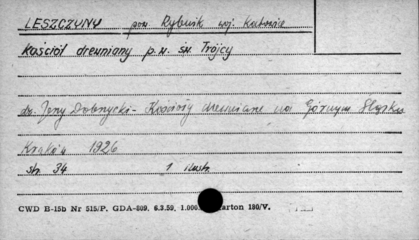 LESZCZYNY pow. Rybnik woj. Katowice
Kościół drewniany p.w. św. Trójcy
dr. Jerzy Dobrzycki - Kościoły drewniane na Górnym Śląsku
Kraków 1926
str. 34 1 ilustr.
CWD B-15b Nr 515/P. GDA-809. 6.3.59. 1.000. karton 180/V.